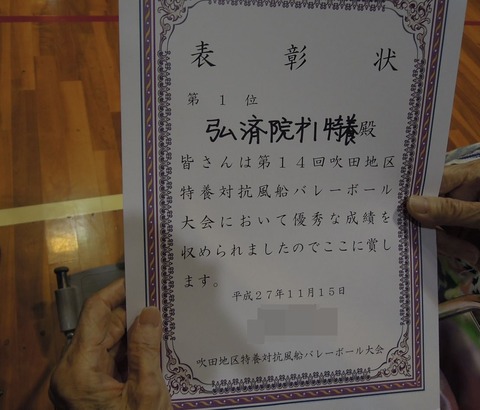 表彰状
第1位
弘済院オ1特養殿
皆さんは第14回吹田地区
特養対抗風船バレーボール
大会において優秀な成績を
収められましたのでここに賞し
ます。
平成27年11月15日
吹田地区特養対抗風船バレーボール大会